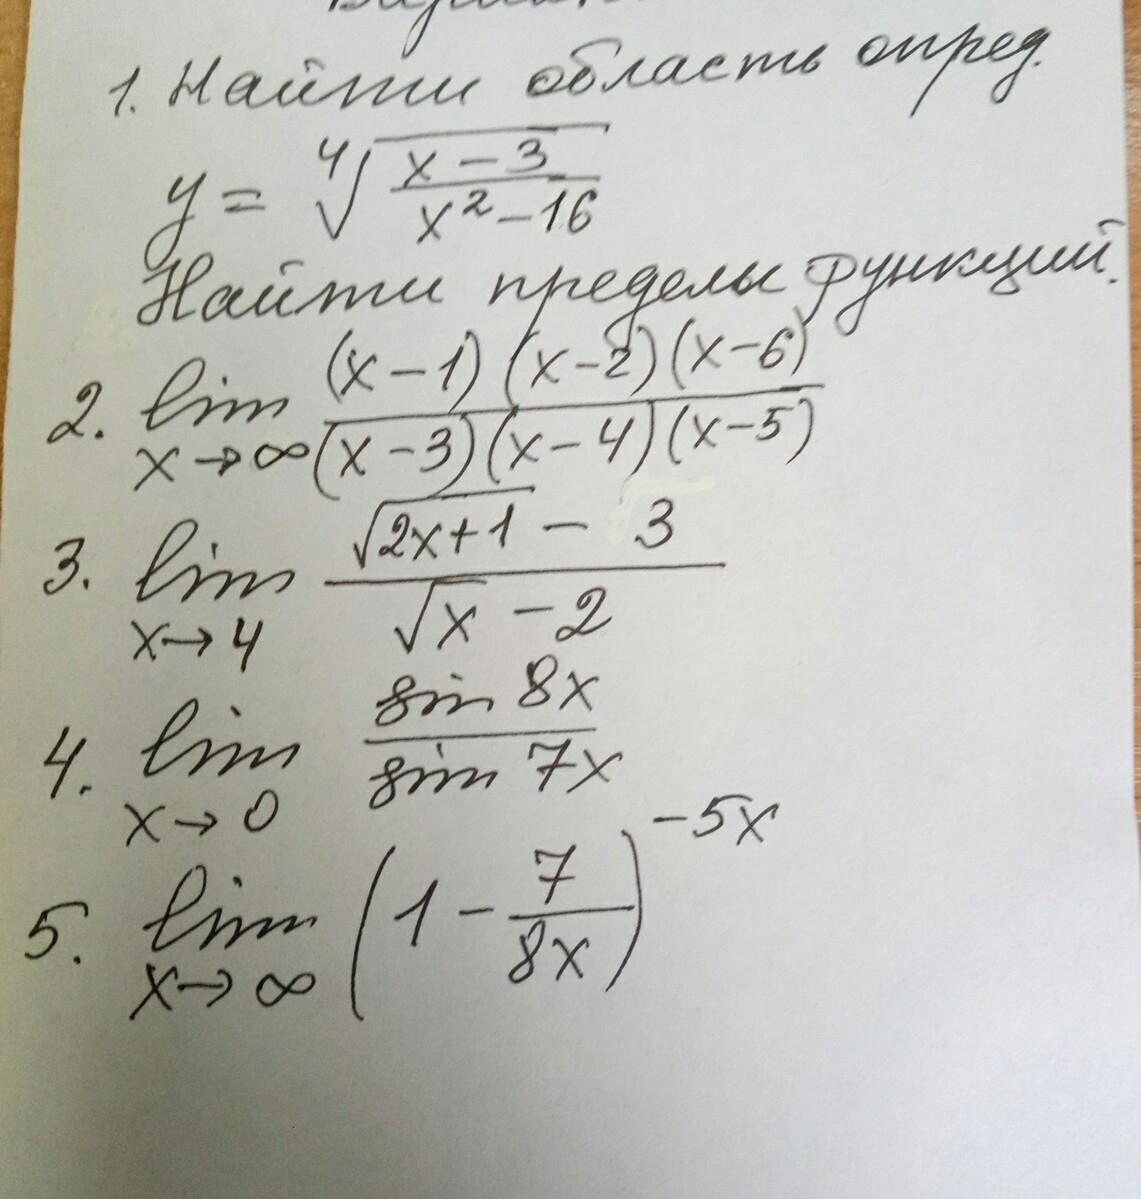 1. Найти область опред.
y = ∜((x - 3)/(x² - 16))
Найти пределы функций.
2. lim x→∞ ((x - 1)(x - 2)(x - 6))/((x - 3)(x - 4)(x - 5))
3. lim x→4 (√(2x+1) - 3)/(√x - 2)
4. lim x→0 (sin 8x)/(sin 7x)
5. lim x→∞ (1 - 7/(8x))^(-5x)